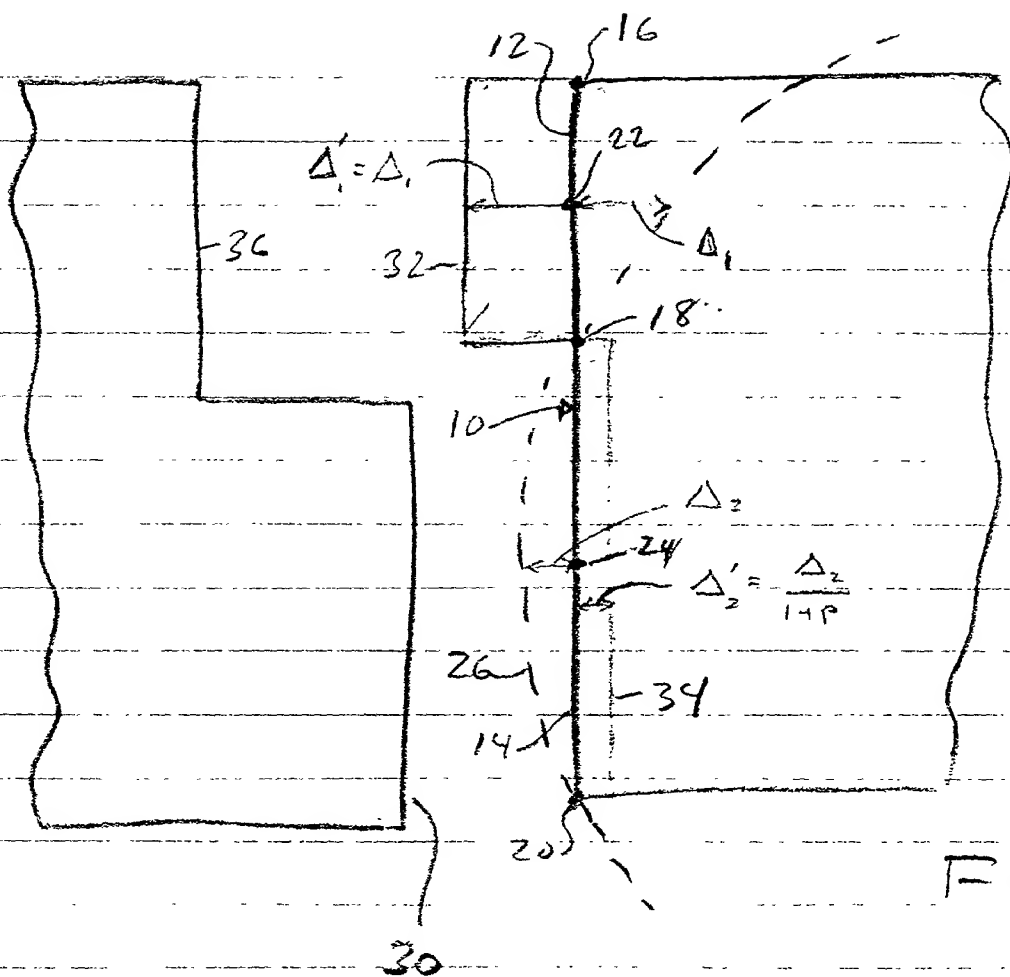 12
16
22
Δ₁' = Δ₁
36
32
Δ₁
18
10
Δ₂
24
Δ₂' = Δ₂ / 1+P
26
34
14
20
F
30